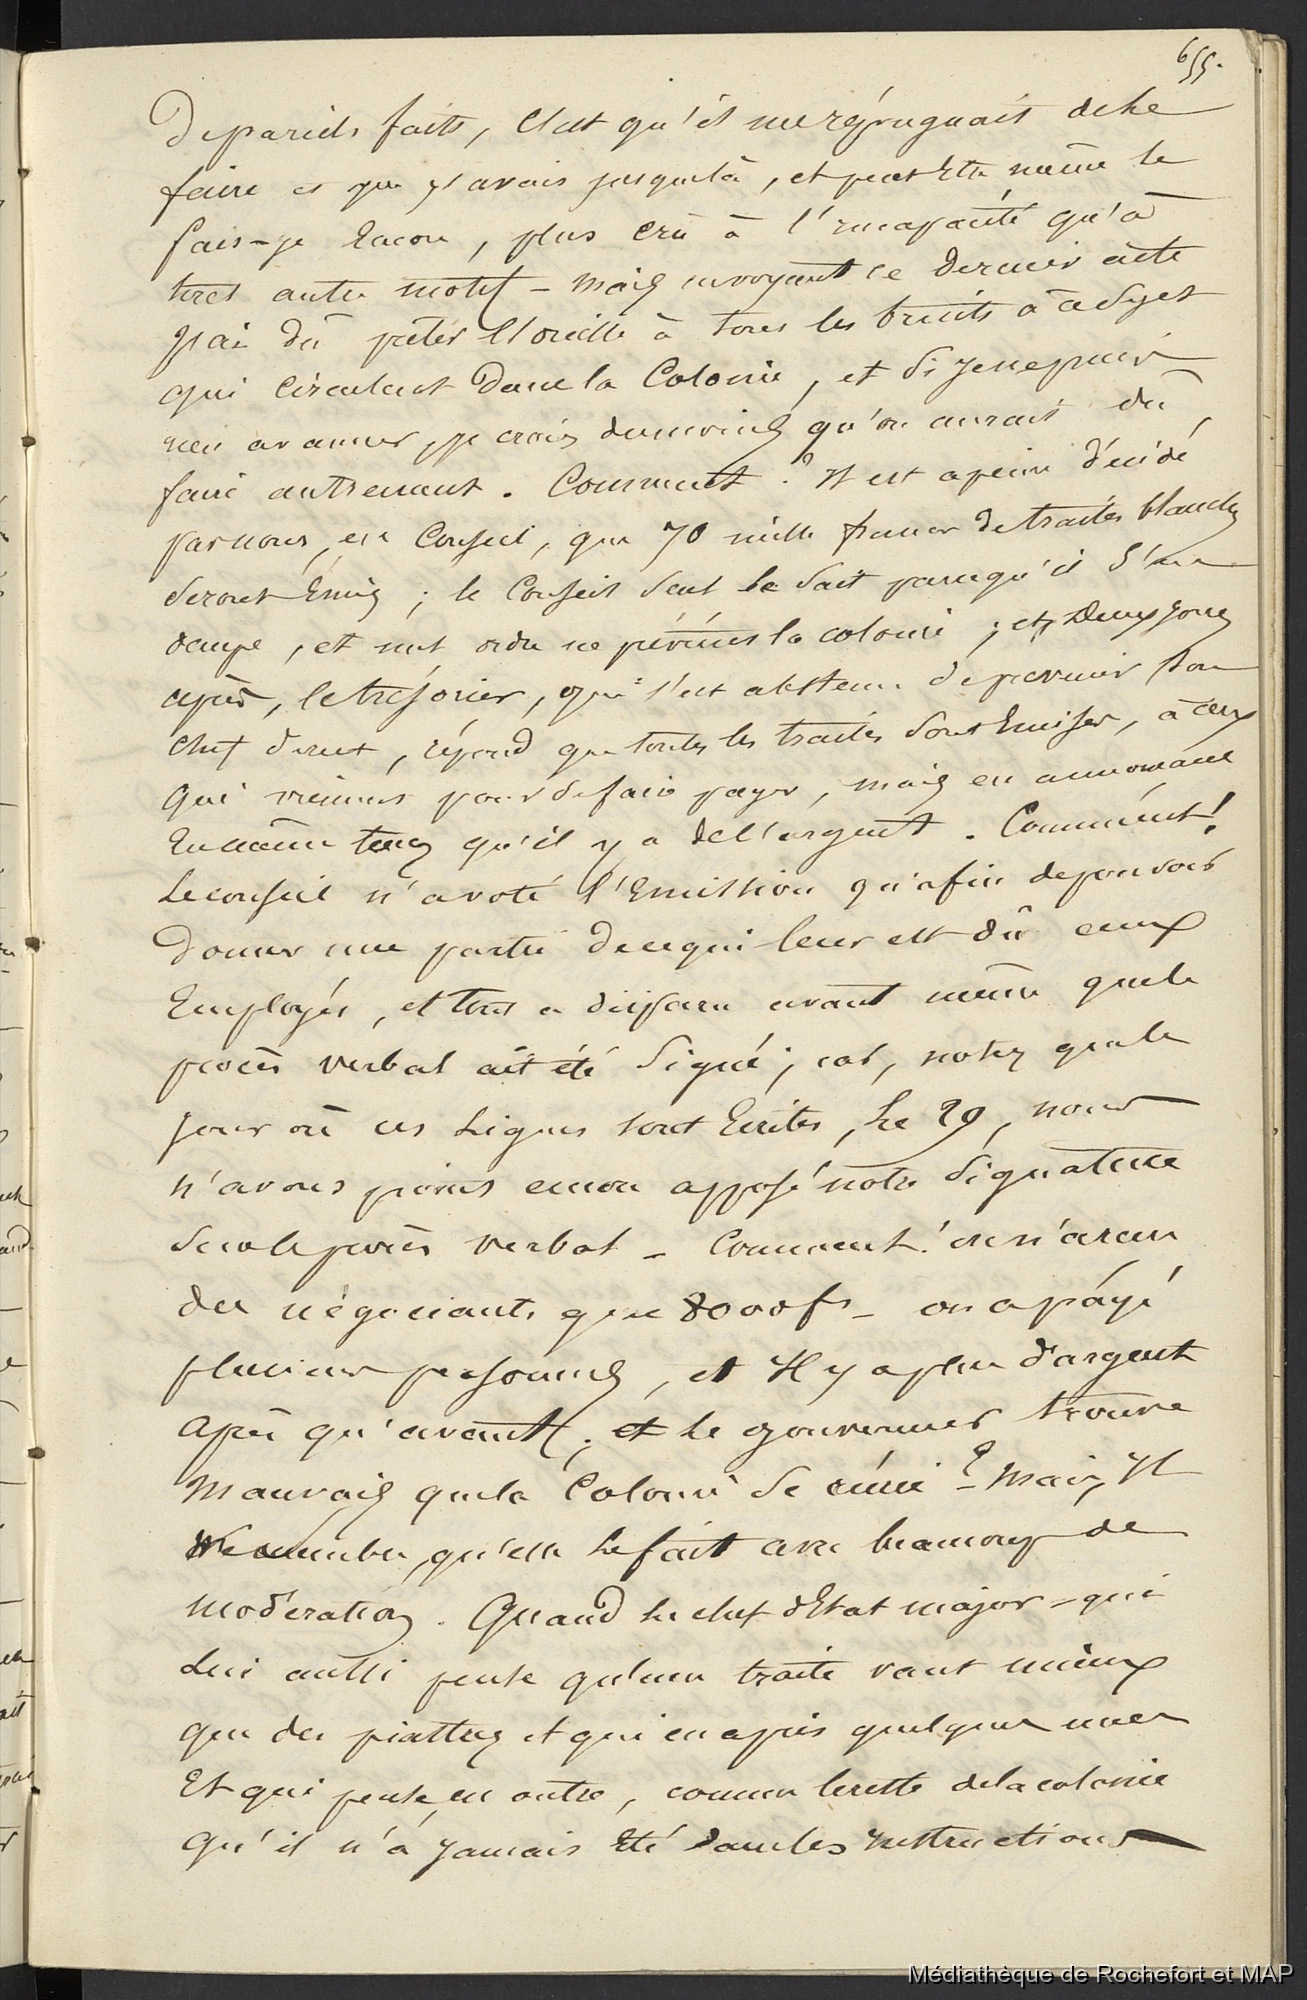 655.
De pareils faits, c'est qu'il me répugnait de le
faire et que j'avais jusque là, et peut être même le
fais-je encore, plus crû à l'incapacité qu'à
tout autre motif - mais en voyant ce dernier acte
j'ai dû prêter l'oreille à tous les bruits à ce sujet
qui circulent dans la Colonie, et si je ne puis
rien avancer, je crois du moins qu'on aurait dû
faire autrement. Comment ? Il est a peine décidé
par nous, en Conseil, que 70 mille francs de traites blanches
seront émis ; le Conseil seul le sait parcequ'il s'en
occupe, et nul ordre ne prévient la colonie ; et deux jours
après, le trésorier, qui s'est abstenu de prévenir son
chef direct, répond que toutes les traites sont émises, à ceux
qui viennent pour se faire payer, mais en annonçant
En même temps qu'il y a de l'argent. Comment !
Le conseil n'a voté l'émission qu'afin de pouvoir
Donner une partie de ce qui leur est dû aux
Employés, et tout a disparu avant même que le
procès verbal ait été signé ; car, notez que le
jour où ces lignes sont écrites, le 29, nous
n'avons point encore apposé notre signature
sur le procès verbal - Comment ! on n'a reçu
des négociants que 8000 fs - on a payé
plusieurs personnes, et il y a plus d'argent
après qu'avant ; et le gouverneur trouve
mauvais que la Colonie se récrie ? - Mais, il
me semble, qu'elle le fait avec beaucoup de
modération. Quand le chef d'Etat major - qui
lui aussi pense qu'une traite vaut mieux
que des piastres et qui en a pris quelques unes
Et qui pense, en outre, comme le reste de la colonie
qu'il n'a jamais été dans les instructions
Médiathèque de Rochefort et MAP